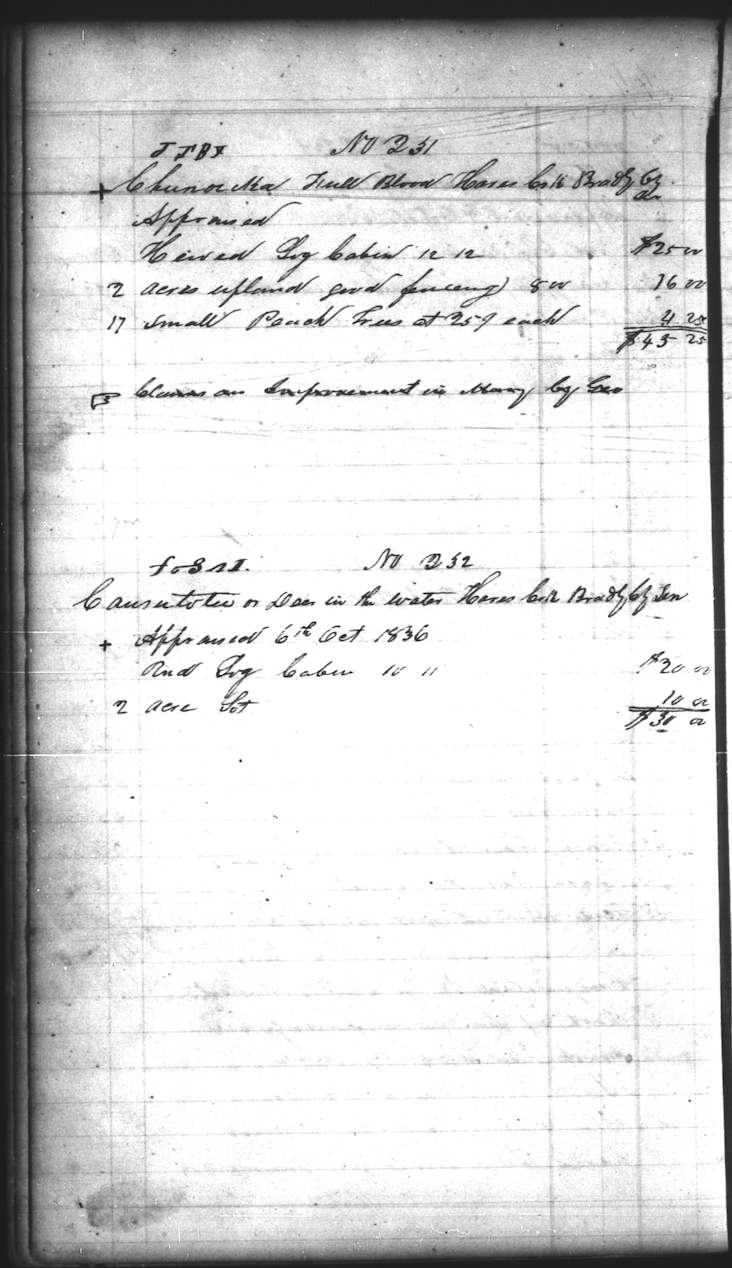 No 231
Full Blood Hares Crk Bradly Cty
Appraised
Hewed Log Cabin 12 12 $25 00
2 acres upland good fencing) 8 00 16 00
17 Small Peach Trees at 25¢ each 4 25
$45 25
Claims an Improvement in Murry Cty Geo
No 232
or Deer in the water Hares Crk Bradly Cty Ten
+ Appraised 6th Oct 1836
Rnd Log Cabin 10 11 $20 00
2 acre Lot 10 00
$30 00